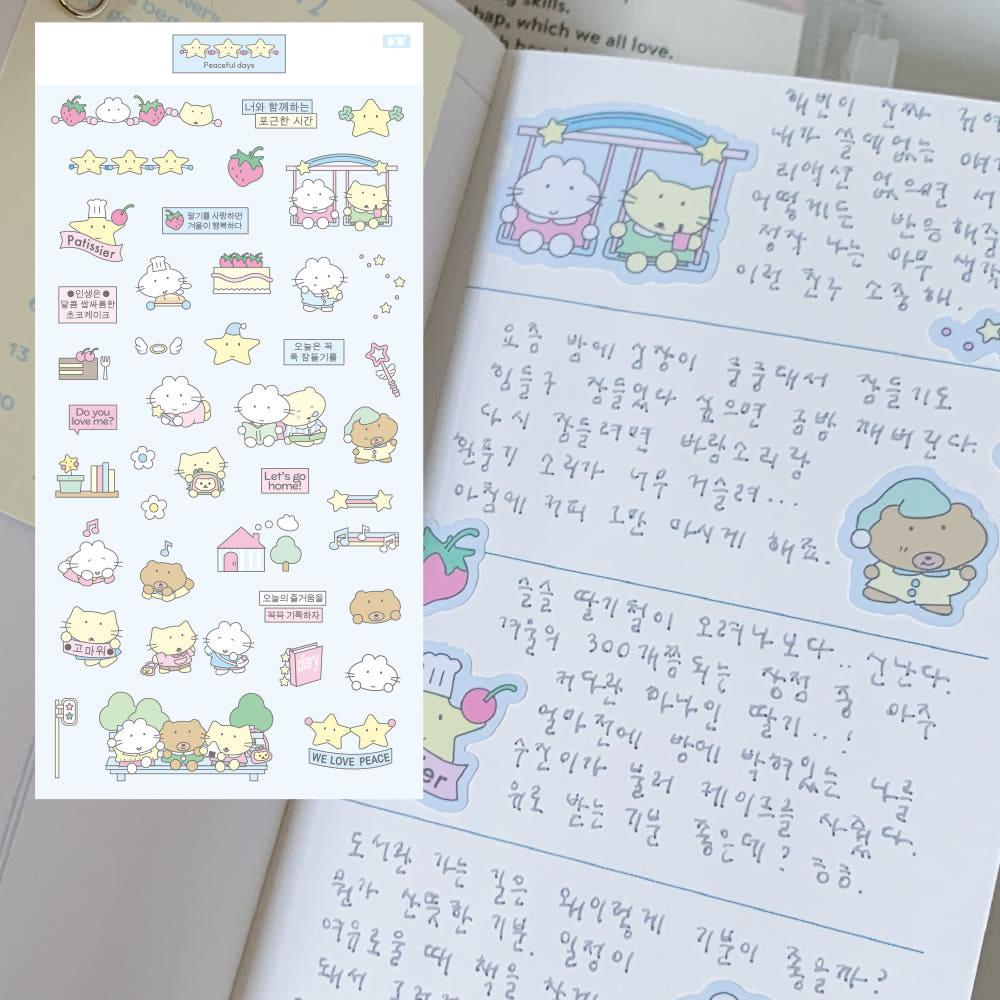 Peaceful days
너와 함께하는
포근한 시간
딸기를 사랑하면
겨울이 행복하다
Patissier
●인생은●
달콤 쌉싸름한
초코케이크
오늘은 꼭
푹 잠들기를
Do you
love me?
Let's go
home!
오늘의 즐거움을
꼭꼭 기록하자
●고마워●
diary
WE LOVE PEACE
skills.
hap, which we all love.
해빈이 진짜 귀여
내가 쓸데없는 얘
리액션 없으면 서
어떻게든 반응해줌
정작 나는 아무 생각
이런 친구 소중해.
요즘 밤에 심장이 쿵쿵대서 잠들기도
힘들구 잠들었다 싶으면 금방 깨버린다.
다시 잠들려면 바람소리랑
환풍기 소리가 너무 거슬려...
아침에 커피 그만 마시게 해죠.
슬슬 딸기철이 오려나보다.. 신난다.
겨울의 300개쯤 되는 장점 중 아주
커다란 하나인 딸기...!
얼마전에 방에 박혀있는 나를
수진이가 불러 케이크를 사줬다.
위로 받는 기분 좋은데? 흠흠.
도서관 가는 길은 왜이렇게 기분이 좋을까?
뭔가 산뜻한 기분. 일정이
여유로울 때 책을
돼서
er
13